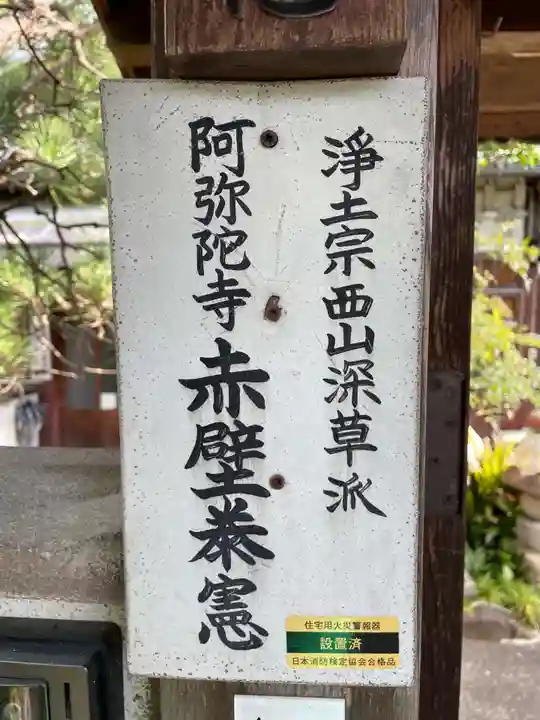 浄土宗西山深草派
阿弥陀寺 赤壁泰憲
住宅用火災警報器
設置済
日本消防検定協会合格品